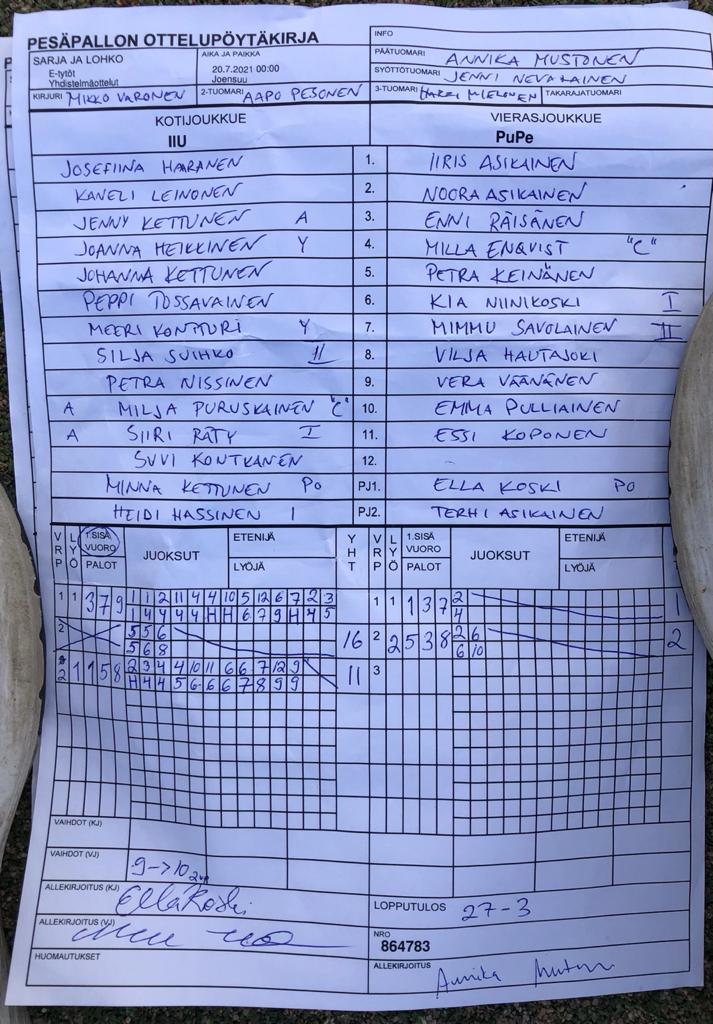 PESÄPALLON OTTELUPÖYTÄKIRJA
INFO
SARJA JA LOHKO
E-tytöt
Yhdistelmäottelut
AIKA JA PAIKKA
20.7.2021 00:00
Joensuu
PÄÄTUOMARI ANNIKA MUSTONEN
SYÖTTÖTUOMARI JENNI NEVALAINEN
KIRJURI MIKKO VARONEN 2-TUOMARI AAPO PESONEN 3-TUOMARI HARRI MIELONEN TAKARAJATUOMARI
KOTIJOUKKUE VIERASJOUKKUE
IIU PuPe
JOSEFIINA HAARANEN 1. IIRIS ASIKAINEN
KANELI LEINONEN 2. NOORA ASIKAINEN
JENNY KETTUNEN A 3. ENNI RÄISÄNEN
JOANNA HEIKKINEN Y 4. MILLA ENQVIST "C"
JOHANNA KETTUNEN 5. PETRA KEINÄNEN
PEPPI TOSSAVAINEN 6. KIA NIINIKOSKI I
MEERI KONTTURI Y 7. MIMMU SAVOLAINEN II
SILJA SUIHKO II 8. VILJA HAUTAJOKI
PETRA NISSINEN 9. VERA VÄÄNÄNEN
A MILJA PURUSKAINEN "C" 10. EMMA PULLIAINEN
A SIIRI RÄTY I 11. ESSI KOPONEN
SUVI KONTKANEN 12. -
MINNA KETTUNEN PO PJ1. ELLA KOSKI PO
HEIDI HASSINEN I PJ2. TERHI ASIKAINEN
VRP LYÖ 1.SISÄ VUORO PALOT JUOKSUT ETENIJÄ LYÖJÄ YHT VRP LYÖ 1.SISÄ VUORO PALOT JUOKSUT ETENIJÄ LYÖJÄ
1 1 3 7 9 1 1 2 11 4 4 10 5 12 6 7 2 3 1 1 1 3 7 2 1
1 4 4 4 4 H H 6 7 9 H 4 5 4
2 5 5 6 16 2 2 5 3 8 2 6 2
5 6 8 6 10
2 1 1 5 8 2 3 4 4 10 11 6 6 7 12 9 11 3
H 4 4 5 6 6 6 7 8 9 9
VAIHDOT (KJ)
VAIHDOT (VJ)
9->10
ALLEKIRJOITUS (KJ) Ella Koski
LOPPUTULOS 27-3
ALLEKIRJOITUS (VJ)
NRO
864783
HUOMAUTUKSET
ALLEKIRJOITUS Annika